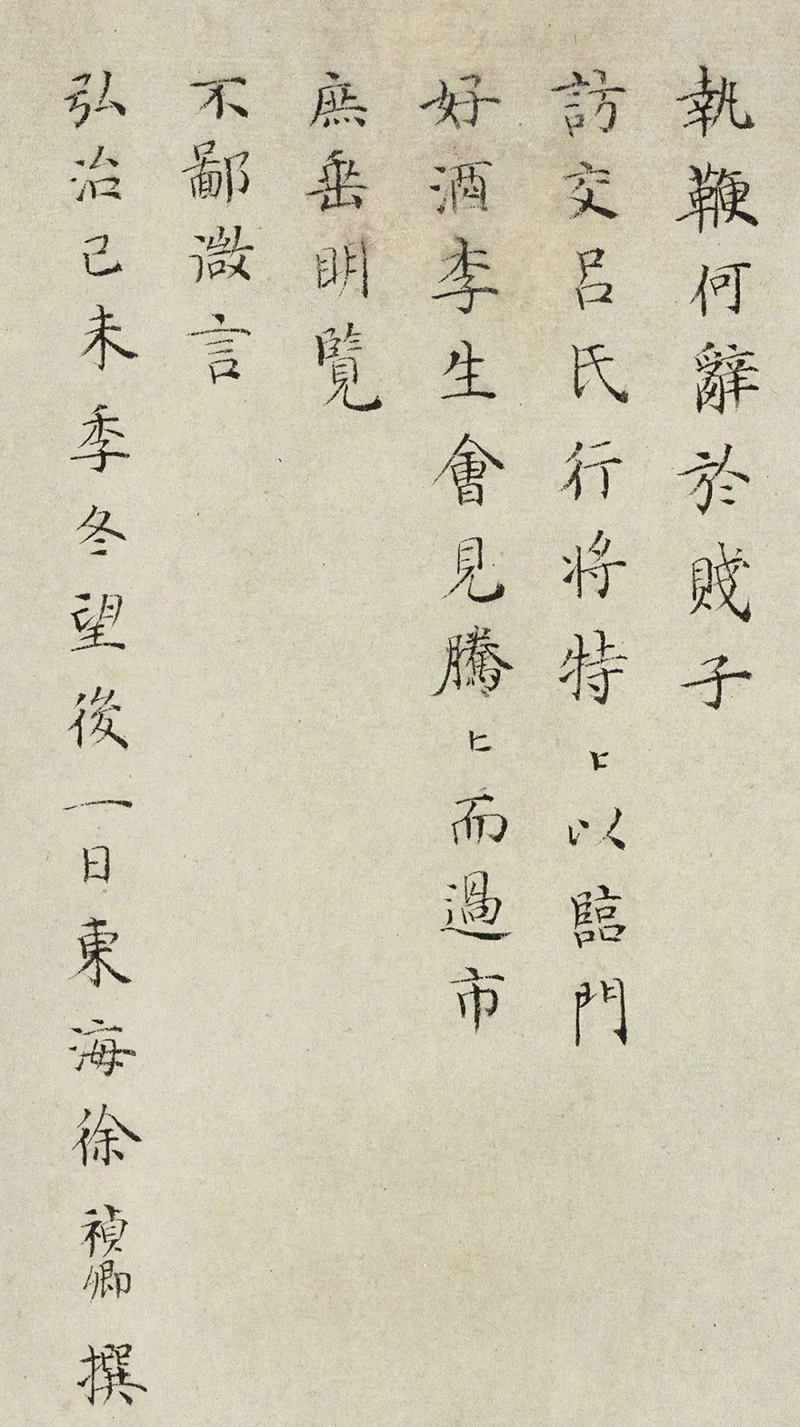 執鞭何辭於賤子
訪交呂氏行將特〻以臨門
好酒李生會見騰〻而過市
庶垂明覽
不鄙微言
弘治己未季冬望後一日東海徐禎卿撰